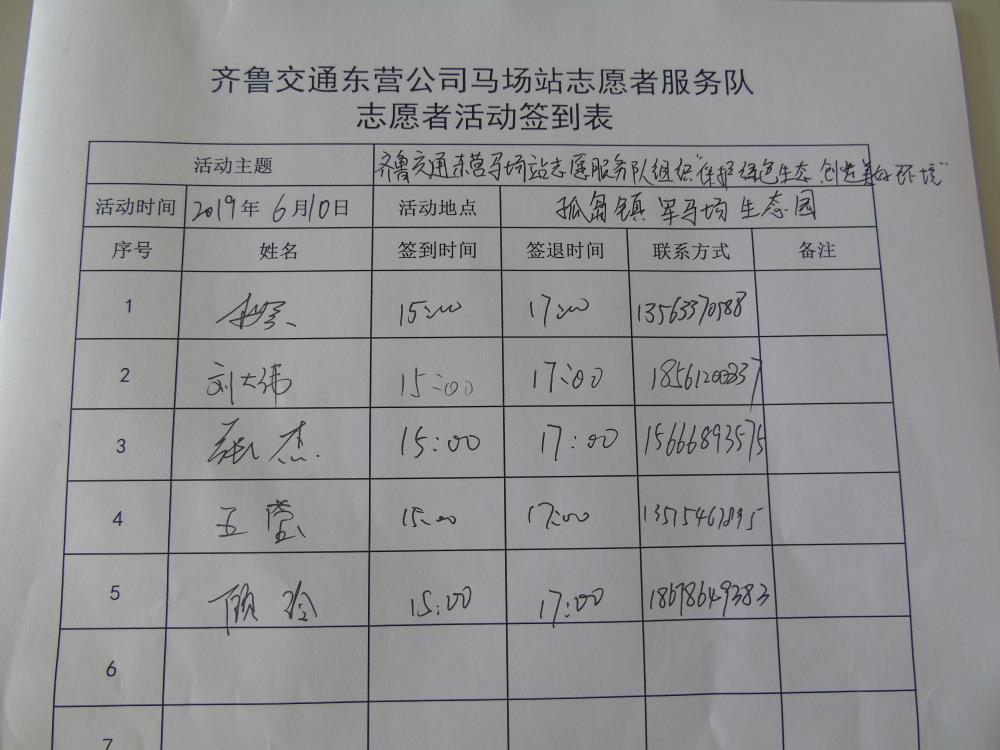 齐鲁交通东营公司马场站志愿者服务队
志愿者活动签到表
活动主题 齐鲁交通东营马场站志愿服务队组织"保护绿色生态 创造美好环境"
活动时间 2019年 6月10日 活动地点 孤岛镇 军马场 生态园
序号 姓名 签到时间 签退时间 联系方式 备注
1 15:00 17:00 13563370588
2 刘大伟 15:00 17:00 18561200337
3 张杰 15:00 17:00 15666893575
4 王莹 15:00 17:00 13515467895
5 顾玲 15:00 17:00 18678649383
6
7